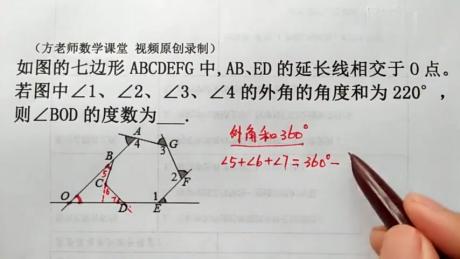 （方老师数学课堂 视频原创录制）
如图的七边形 ABCDEFG 中,AB、ED 的延长线相交于 O 点。
若图中∠1、∠2、∠3、∠4 的外角的角度和为 220°，
则∠BOD 的度数为___.
外角和360°
∠5+∠6+∠7=360°-
A
4
G
3
B
5
C
6
2
F
7
1
O
D
E